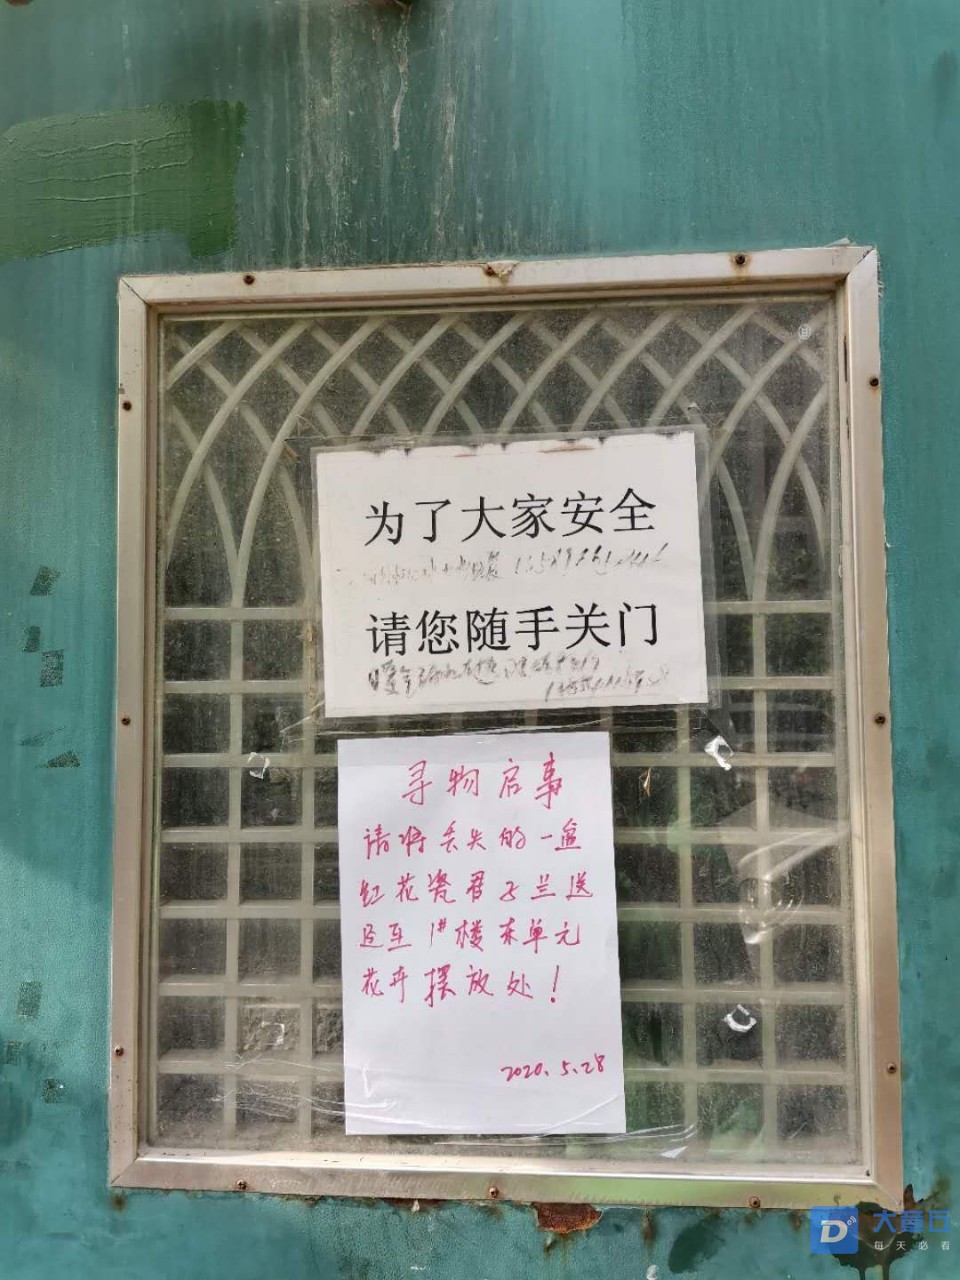 为了大家安全
请您随手关门
寻物启事
请将丢失的一盆
红花瓷君子兰送
回至1#楼东单元
花卉摆放处!
2020.5.28
每天必看